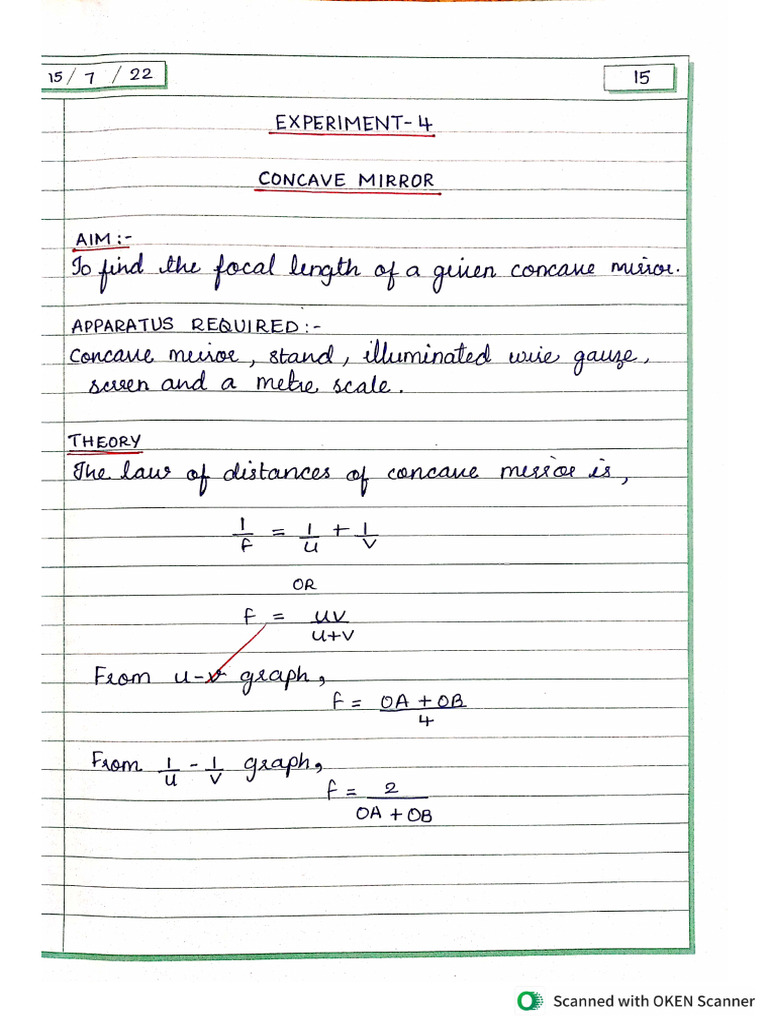 15/7/22
15
EXPERIMENT-4
CONCAVE MIRROR
AIM:-
To find the focal length of a given concave mirror.
APPARATUS REQUIRED:-
Concave mirror, stand, illuminated wire gauze,
screen and a metre scale.
THEORY
The law of distances of concave mirror is,
1/f = 1/u + 1/v
OR
f = uv/u+v
From u-v graph,
f = OA + OB/4
From 1/u - 1/v graph,
f = 2/OA + OB
Scanned with OKEN Scanner